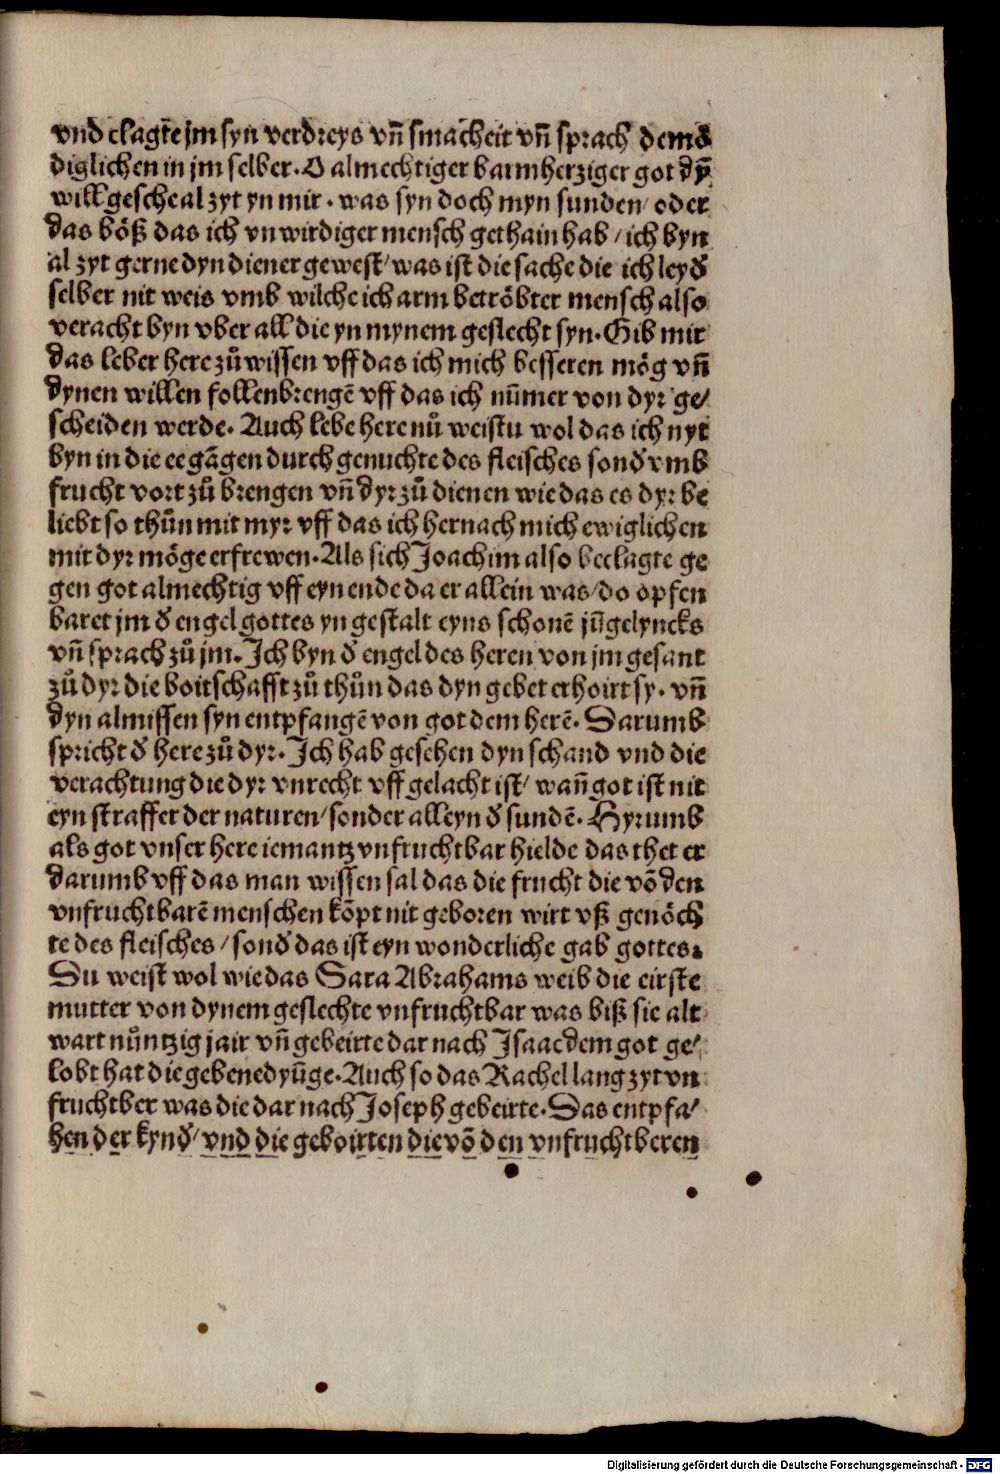 vnd clagte jm syn verdreys vñ smacheit vñ sprach demö
diglichen in jm selber. O almechtiger barmherziger got dȳ
will gesche al zyt yn mir. was syn doch myn sunden/ oder
das böß das ich vnwirdiger mensch gethain hab/ ich byn
al zyt gerne dyn diener gewest/ was ist die sache die ich leyđ
selber nit weis vmb wilche ich arm betröbter mensch also
veracht byn vber all die yn mynem geslecht syn. Gib mir
das leber here zů wissen vff das ich mich besseren mög vñ
dynen willen follenbrengē vff das ich nūmer von dyr ge/
scheiden werde. Auch lebe here nů weistu wol das ich nyt
byn in die ee gāgen durch genuchte des fleisches sonđ vmb
frucht vort zů brengen vñ dyr zů dienen wie das es dyr be
liebt so thůn mit myr vff das ich hernach mich ewiglichen
mit dyr möge erfrewen. Als sich Joachim also beclagte ge
gen got almechtig vff eyn ende da er allein was/ do opfen
baret jm đ engel gottes yn gestalt eyns schonē jūgelyncks
vñ sprach zů jm. Ich byn đ engel des heren von jm gesant
zů dyr die boitschafft zů thůn das dyn gebet erhoirt sy. vñ
dyn almissen syn entpfangē von got dem herē. Darumb
spricht đ here zů dyr. Ich hab gesehen dyn schand vnd die
verachtung die dyr vnrecht vff gelacht ist/ wañ got ist nit
eyn straffer der naturen/ sonder alleyn đ sundē. Hyrumb
als got vnser here iemantz vnfruchtbar hielde das thet er
darumb vff das man wissen sal das die frucht die vō den
vnfruchtbarē menschen kōpt nit geboren wirt vß genöch
te des fleisches/ sonđ das ist eyn wonderliche gab gottes.
Du weist wol wie das Sara Abrahams weib die eirste
mutter von dynem geslechte vnfruchtbar was biß sie alt
wart nůntzig jair vñ gebeirte dar nach Isaac dem got ge/
lobt hat die gebenedyūge. Auch so das Rachel lang zyt vn
fruchtber was die dar nach Joseph gebeirte. Das entpfa/
hen der kynđ/ vnd die geboirten die vō den vnfruchtberen
Digitalisierung gefördert durch die Deutsche Forschungsgemeinschaft - DFG